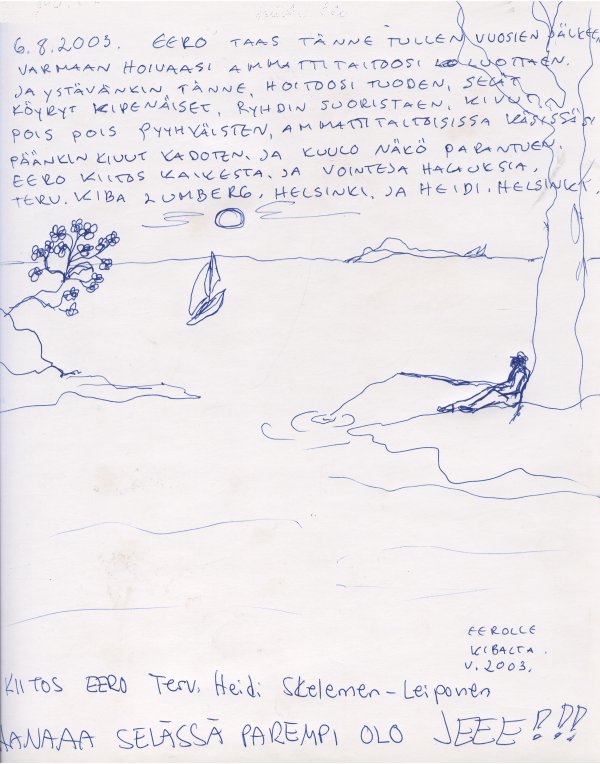 6.8.2003. EERO TAAS TÄNNE TULLEN VUOSIEN JÄLKEEN,
VARMAAN HOIVAASI AMMATTITAITOOSI LUOTTAEN.
JA YSTÄVÄNKIN, TÄNNE, HOITOOSI TUODEN, SELÄT
KÖYRYT KIPENÄISET, RYHDIN SUORISTAEN, KIVUTKIN
POIS POIS PYYHVÄISTEN, AMMATTITAITOISISSA KÄSISSÄSI
PÄÄNKIN KIVUT KADOTEN. JA KUULO NÄKÖ PARANTUEN.
EERO KIITOS KAIKESTA. JA VOINTEJA HALAUKSIA,
TERV. KIBA LUMBERG, HELSINKI. JA HEIDI. HELSINKI.
EEROLLE
KIBALTA.
V. 2003.
KIITOS EERO Terv. Heidi Skelemen-Leiponen
AANAAA SELÄSSÄ PAREMPI OLO JEEE!!!!